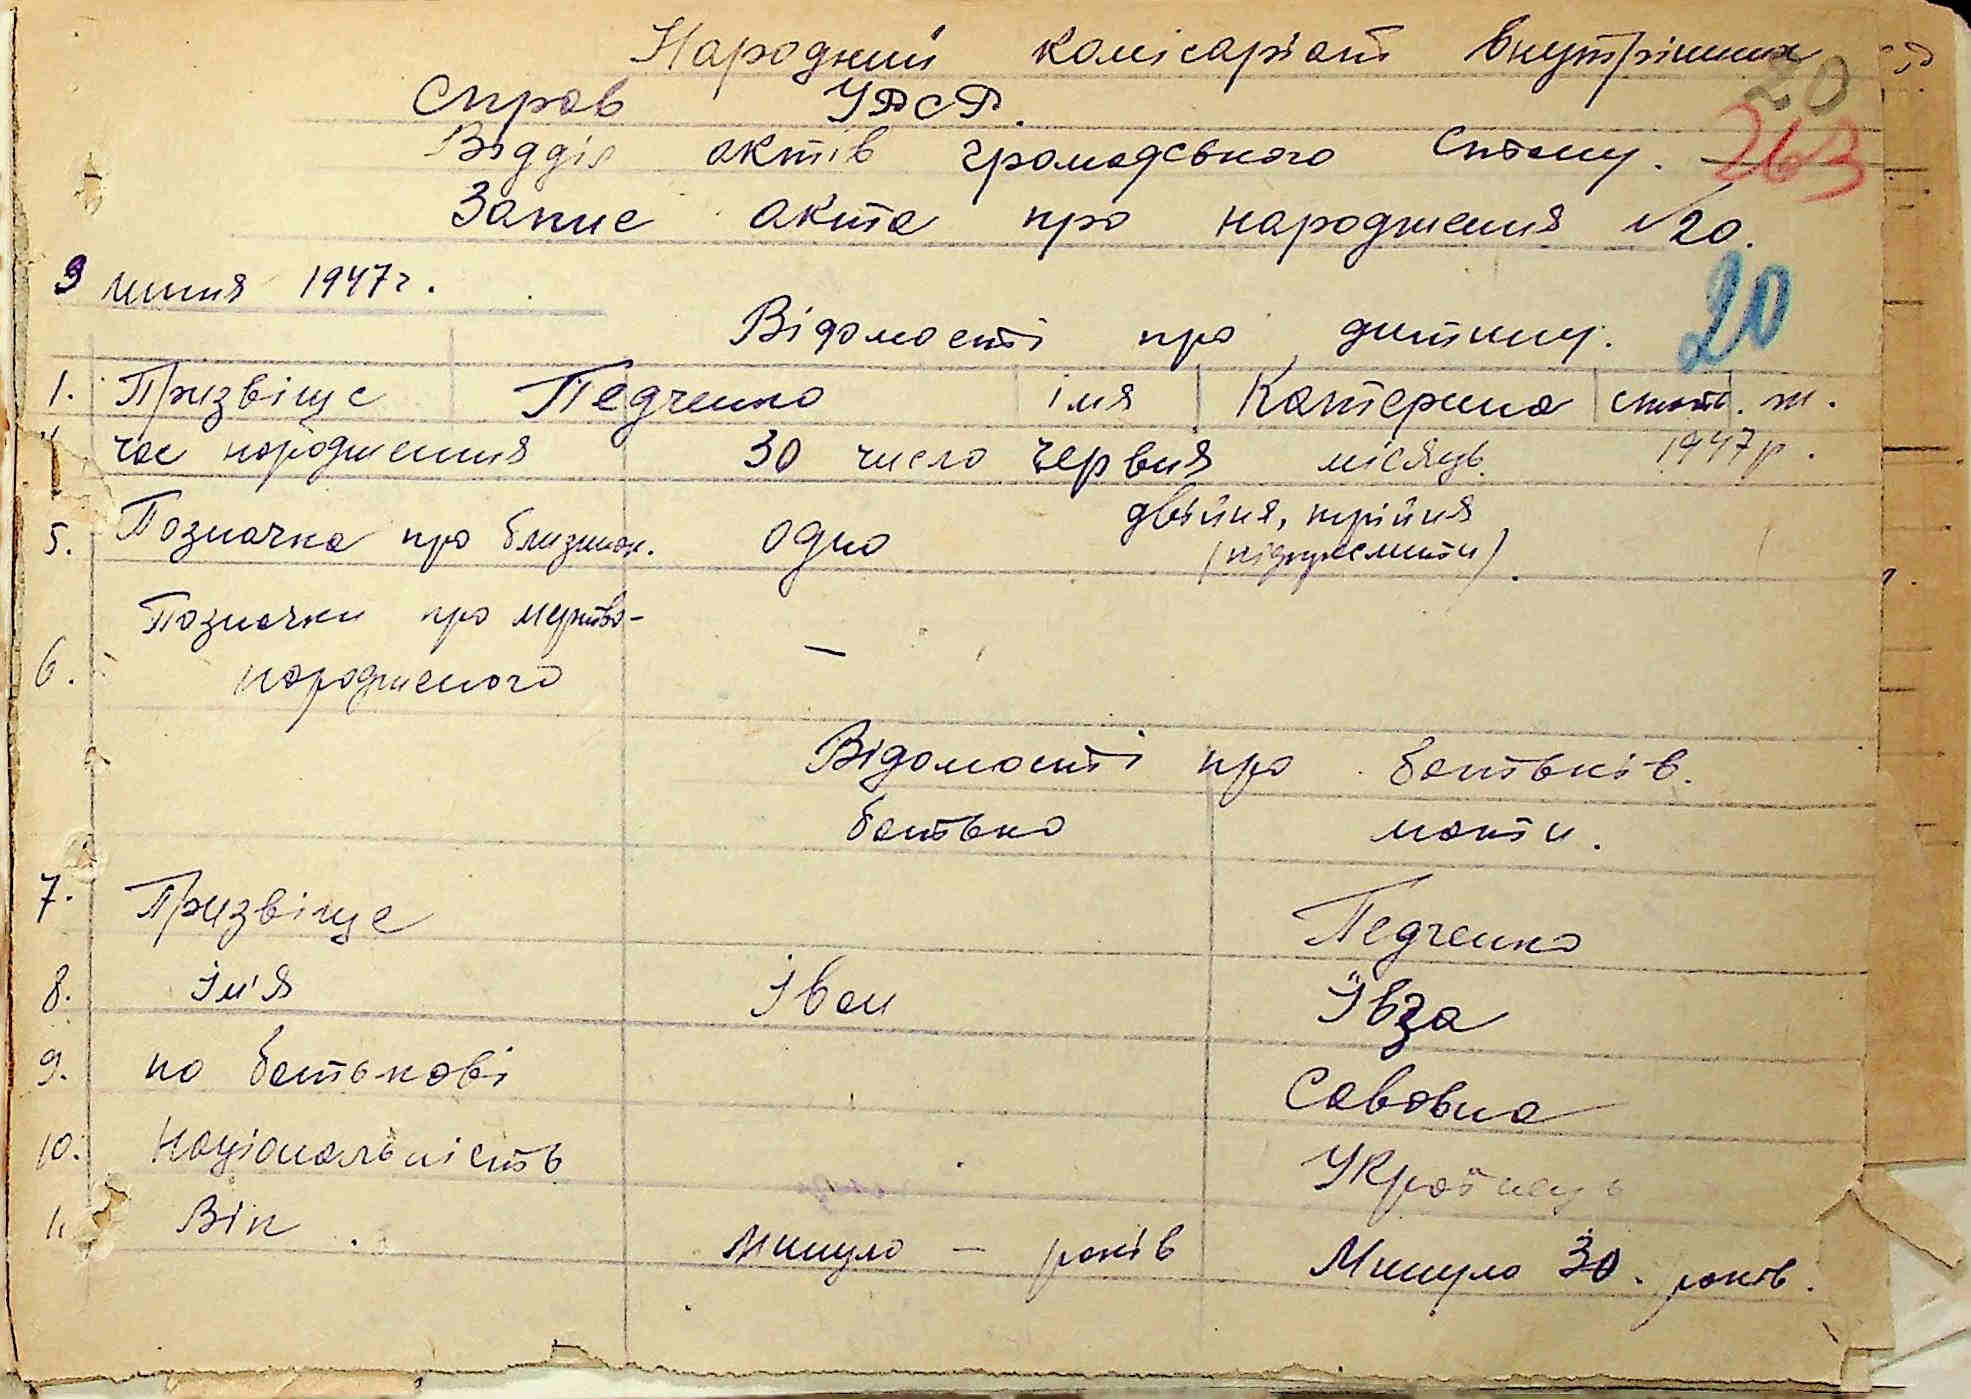 Народний комісаріат внутрішніх
20
Справ УРСР.
263
Відділ актів громадського стану.
Запис акта про народження №20.
9 липня 1947 г.
20
Відомості про дитину.
1. Призвіще Педченко імя Катерина стать. ж.
час народження 30 число червня місяць 1947 р.
5. Позначка про близнюк. одно двійня, трійня
(підкреслити).
Позначки про мертво-
6. народженого —
Відомості про батьків.
батько мати.
7. Призвіще Педченко
8. Ім'я Іван Ївга
9. по батькові Савовна
10. Національність Українець
11. Вік Минуло — років Минуло 30. років.